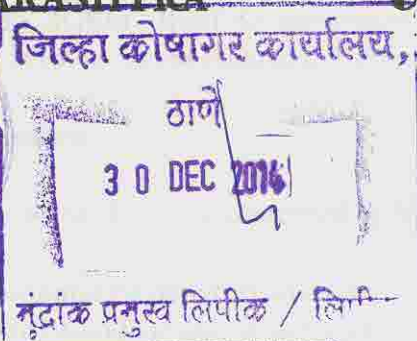 जिल्हा कोषागर कार्यालय,
ठाणे
3 0 DEC 2016
मुंद्रांक प्रमुख लिपीक /